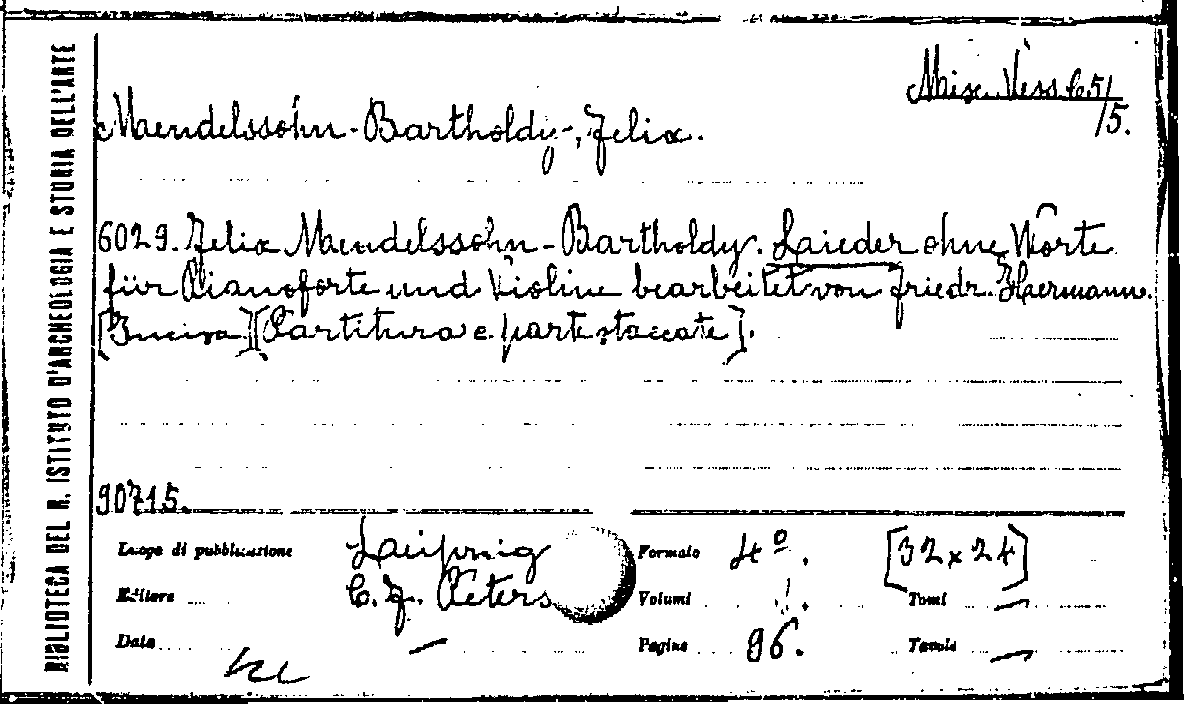 BIBLIOTECA DEL R. ISTITUTO D'ARCHEOLOGIA E STORIA DELL'ARTE
Misc. Vess. C. 5/
/5.
Maendelssohn-Bartholdy-, Felix.
6029. Felix Maendelssohn-Bartholdy. Laieder ohne Worte
für Pianoforte und Violine bearbeitet von friedr. Haermann.
[Incisa][Partitura e parte staccate].
90715.
Luogo di pubblicazione Laeipnig Formato 4º. [32 x 24]
Editore C. F. Peters Volumi 1. Tomi —
Data — Pagine 96. Tavole —